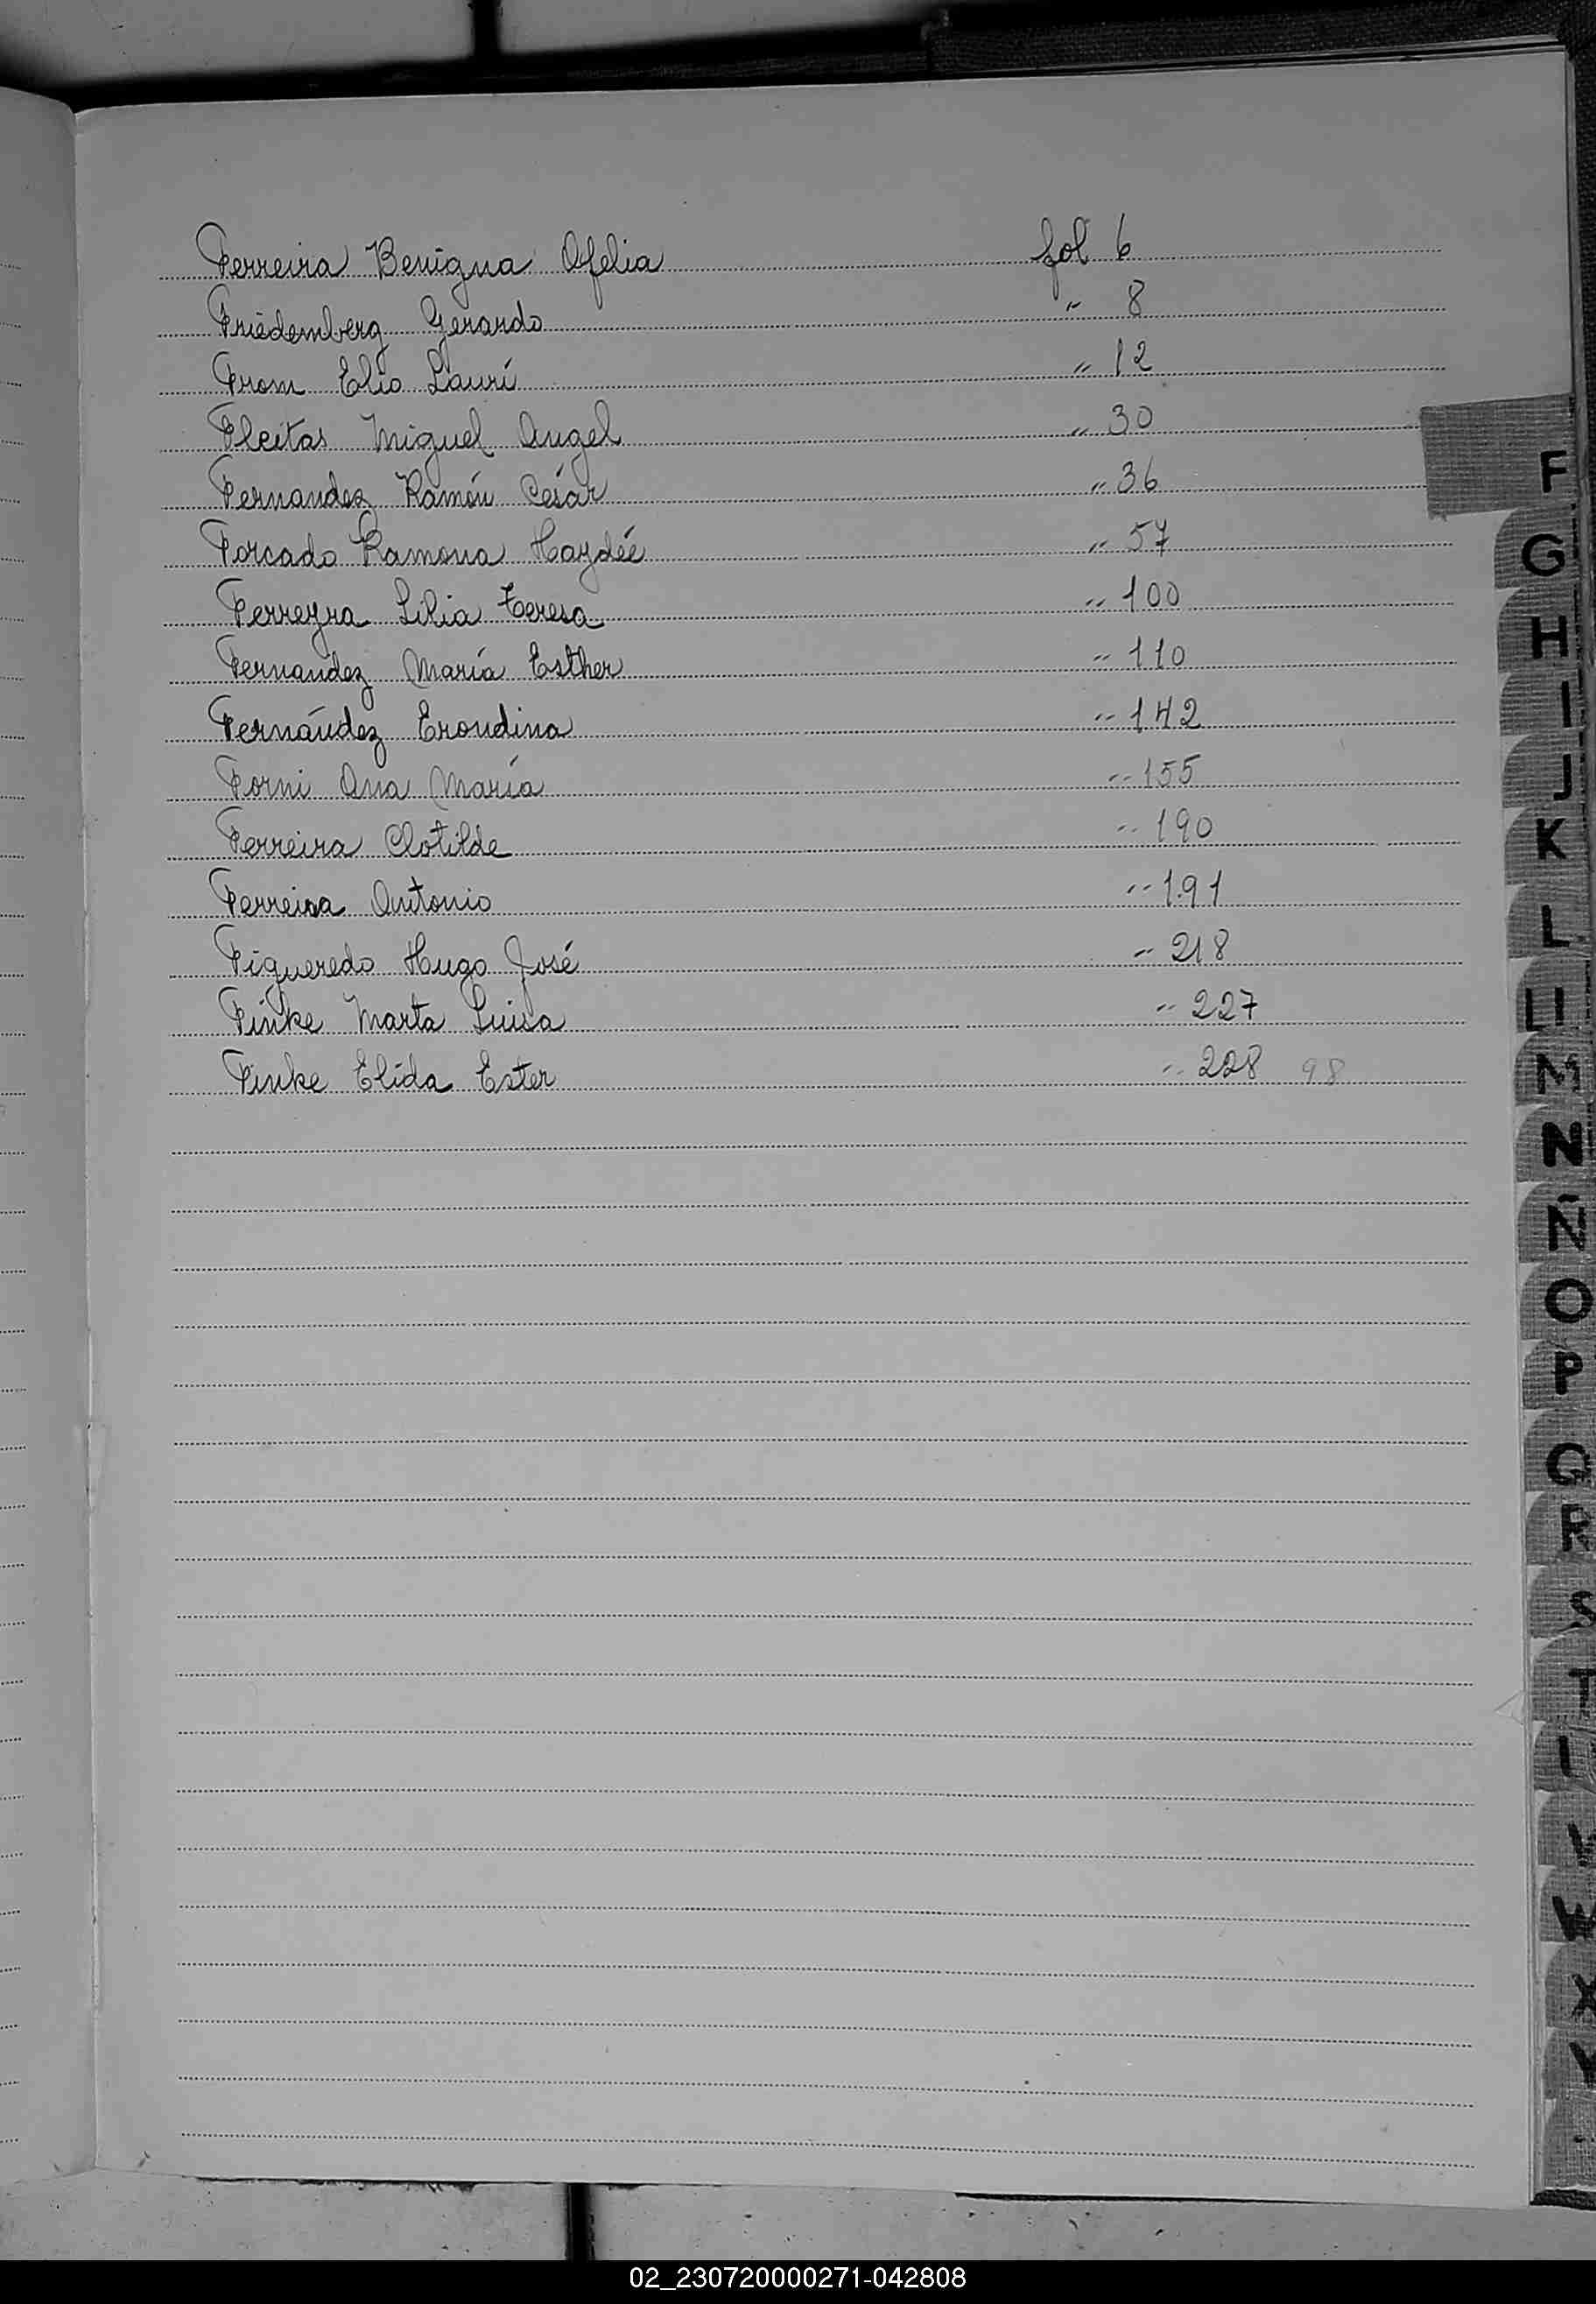 Ferreira Benigna Ofelia fol 6
Friedemberg Gerardo " 8
From Elio Laurí " 12
Fleitas Miguel Angel " 30
Fernandez Ramón César " 36
Forcado Ramona Haydée " 57
Ferreyra Lilia Teresa " 100
Fernandez María Esther " 110
Fernández Erondina " 142
Forni Ana María " 155
Ferreira Clotilde " 190
Ferreira Antonio " 191
Figueredo Hugo José " 218
Finke Marta Luisa " 227
Finke Elida Ester " 228 98
F
G
H
I
J
K
L
Ll
M
N
Ñ
O
P
Q
R
S
T
V
W
X
Y
02_230720000271-042808